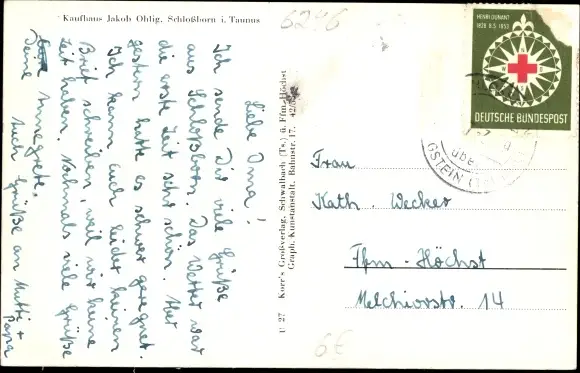 Kaufhaus Jakob Ohlig, Schloßborn i. Taunus
Liebe Oma!
Ich sende Dir viele Grüße
aus Schloßborn. Das Wetter war
die erste Zeit sehr schön. Aber
gestern hatte es schwer geregnet.
Ich kann auch leider keinen
Brief schreiben, weil wir keine
Zeit haben. Nochmals viele Grüße
Deine Annegrete.
auch Grüße an Mutti +
Papa
U 27 Korr's Großverlag, Schwalbach (Ts.) ü. Ffm.-Höchst
Graph. Kunstanstalt, Bahnstr. 17,
6246
HENRI DUNANT
1828 8.5. 1953
DEUTSCHE BUNDESPOST
über
GSTEIN
Frau
Kath. Wecker
Ffm - Höchst
Melchiorstr. 14
6€